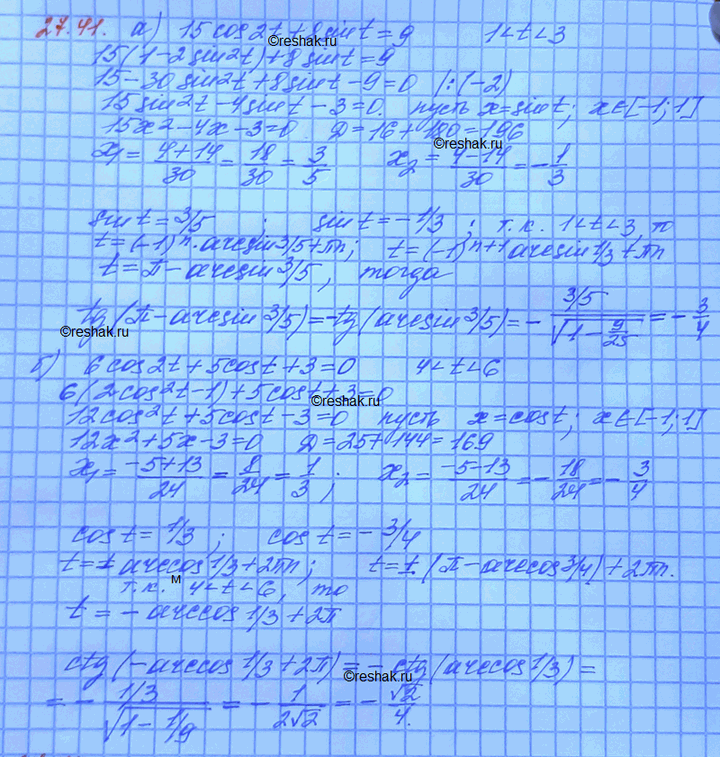 27.41. а) 15 cos2t + 8 sint = 9 1<t<3
©reshak.ru
15(1-2 sin²t)+8 sint=9
15-30 sin²t+8 sint-9=0 |:(-2)
15 sin²t-4 sint-3=0. пусть x=sint; x∈[-1;1]
15x²-4x-3=0 D=16+180=196
©reshak.ru
x₁= (4+14)/30 = 18/30 = 3/5 x₂= (4-14)/30 = -1/3
sint=3/5 ; sint=-1/3 ; т.к. 1<t<3, то
t=(-1)ⁿ·arcsin3/5+πn; t=(-1)ⁿ⁺¹arcsin1/3+πn
t=π-arcsin3/5, тогда
tg(π-arcsin3/5)=-tg(arcsin3/5)=- (3/5)/√(1-9/25) = -3/4
©reshak.ru
б) 6 cos2t+5cost+3=0 4<t<6
6(2cos²t-1)+5cost+3=0
©reshak.ru
12cos²t+5cost-3=0 пусть x=cost; x∈[-1;1]
12x²+5x-3=0 D=25+144=169
x₁= (-5+13)/24 = 8/24 = 1/3 ; x₂= (-5-13)/24 = -18/24 = -3/4
cost=1/3 ; cost=-3/4
t=±arccos1/3+2πn; t=±(π-arccos3/4)+2πn.
т.к. 4<t<6, то
м
t=-arccos1/3+2π
ctg(-arccos1/3+2π)=-ctg(arccos1/3)=
©reshak.ru
=- (1/3)/√(1-1/9) = -1/(2√2) = -√2/4.